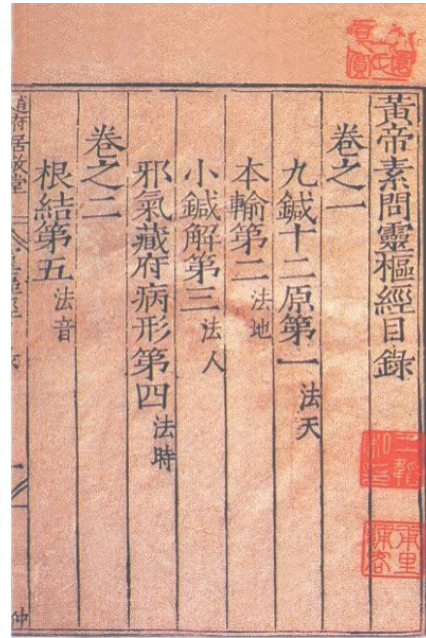 黃帝素問靈樞經目錄
卷之一
九鍼十二原第一 法天
本輸第二 法地
小鍼解第三 法人
邪氣藏府病形第四 法時
卷之二
根結第五 法音
趙府居敬堂